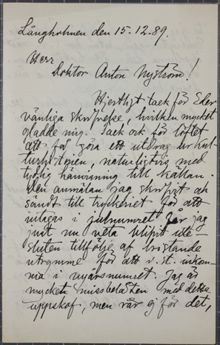 Långholmen den 15.12.89.
Herr
Doktor Anton Nyström!
Hjertligt tack för Eder
vänliga skrifvelse, hvilken mycket
gladde mig. Tack ock för löftet
att få göra ett utdrag ur kul-
turhistorien, naturligtvis med
tydlig hänvisning till källan.
Den anmälan jag skrifvit och
sändt till tryckeriet för att
intagas i julnumret har jag
just nu veta blifvit ute-
sluten till följe af bristande
utrymme för att i st. inkom-
ma i nyårsnumret. Jag är
mycket missbelåten med detta
uppskof, men rår ej för det,